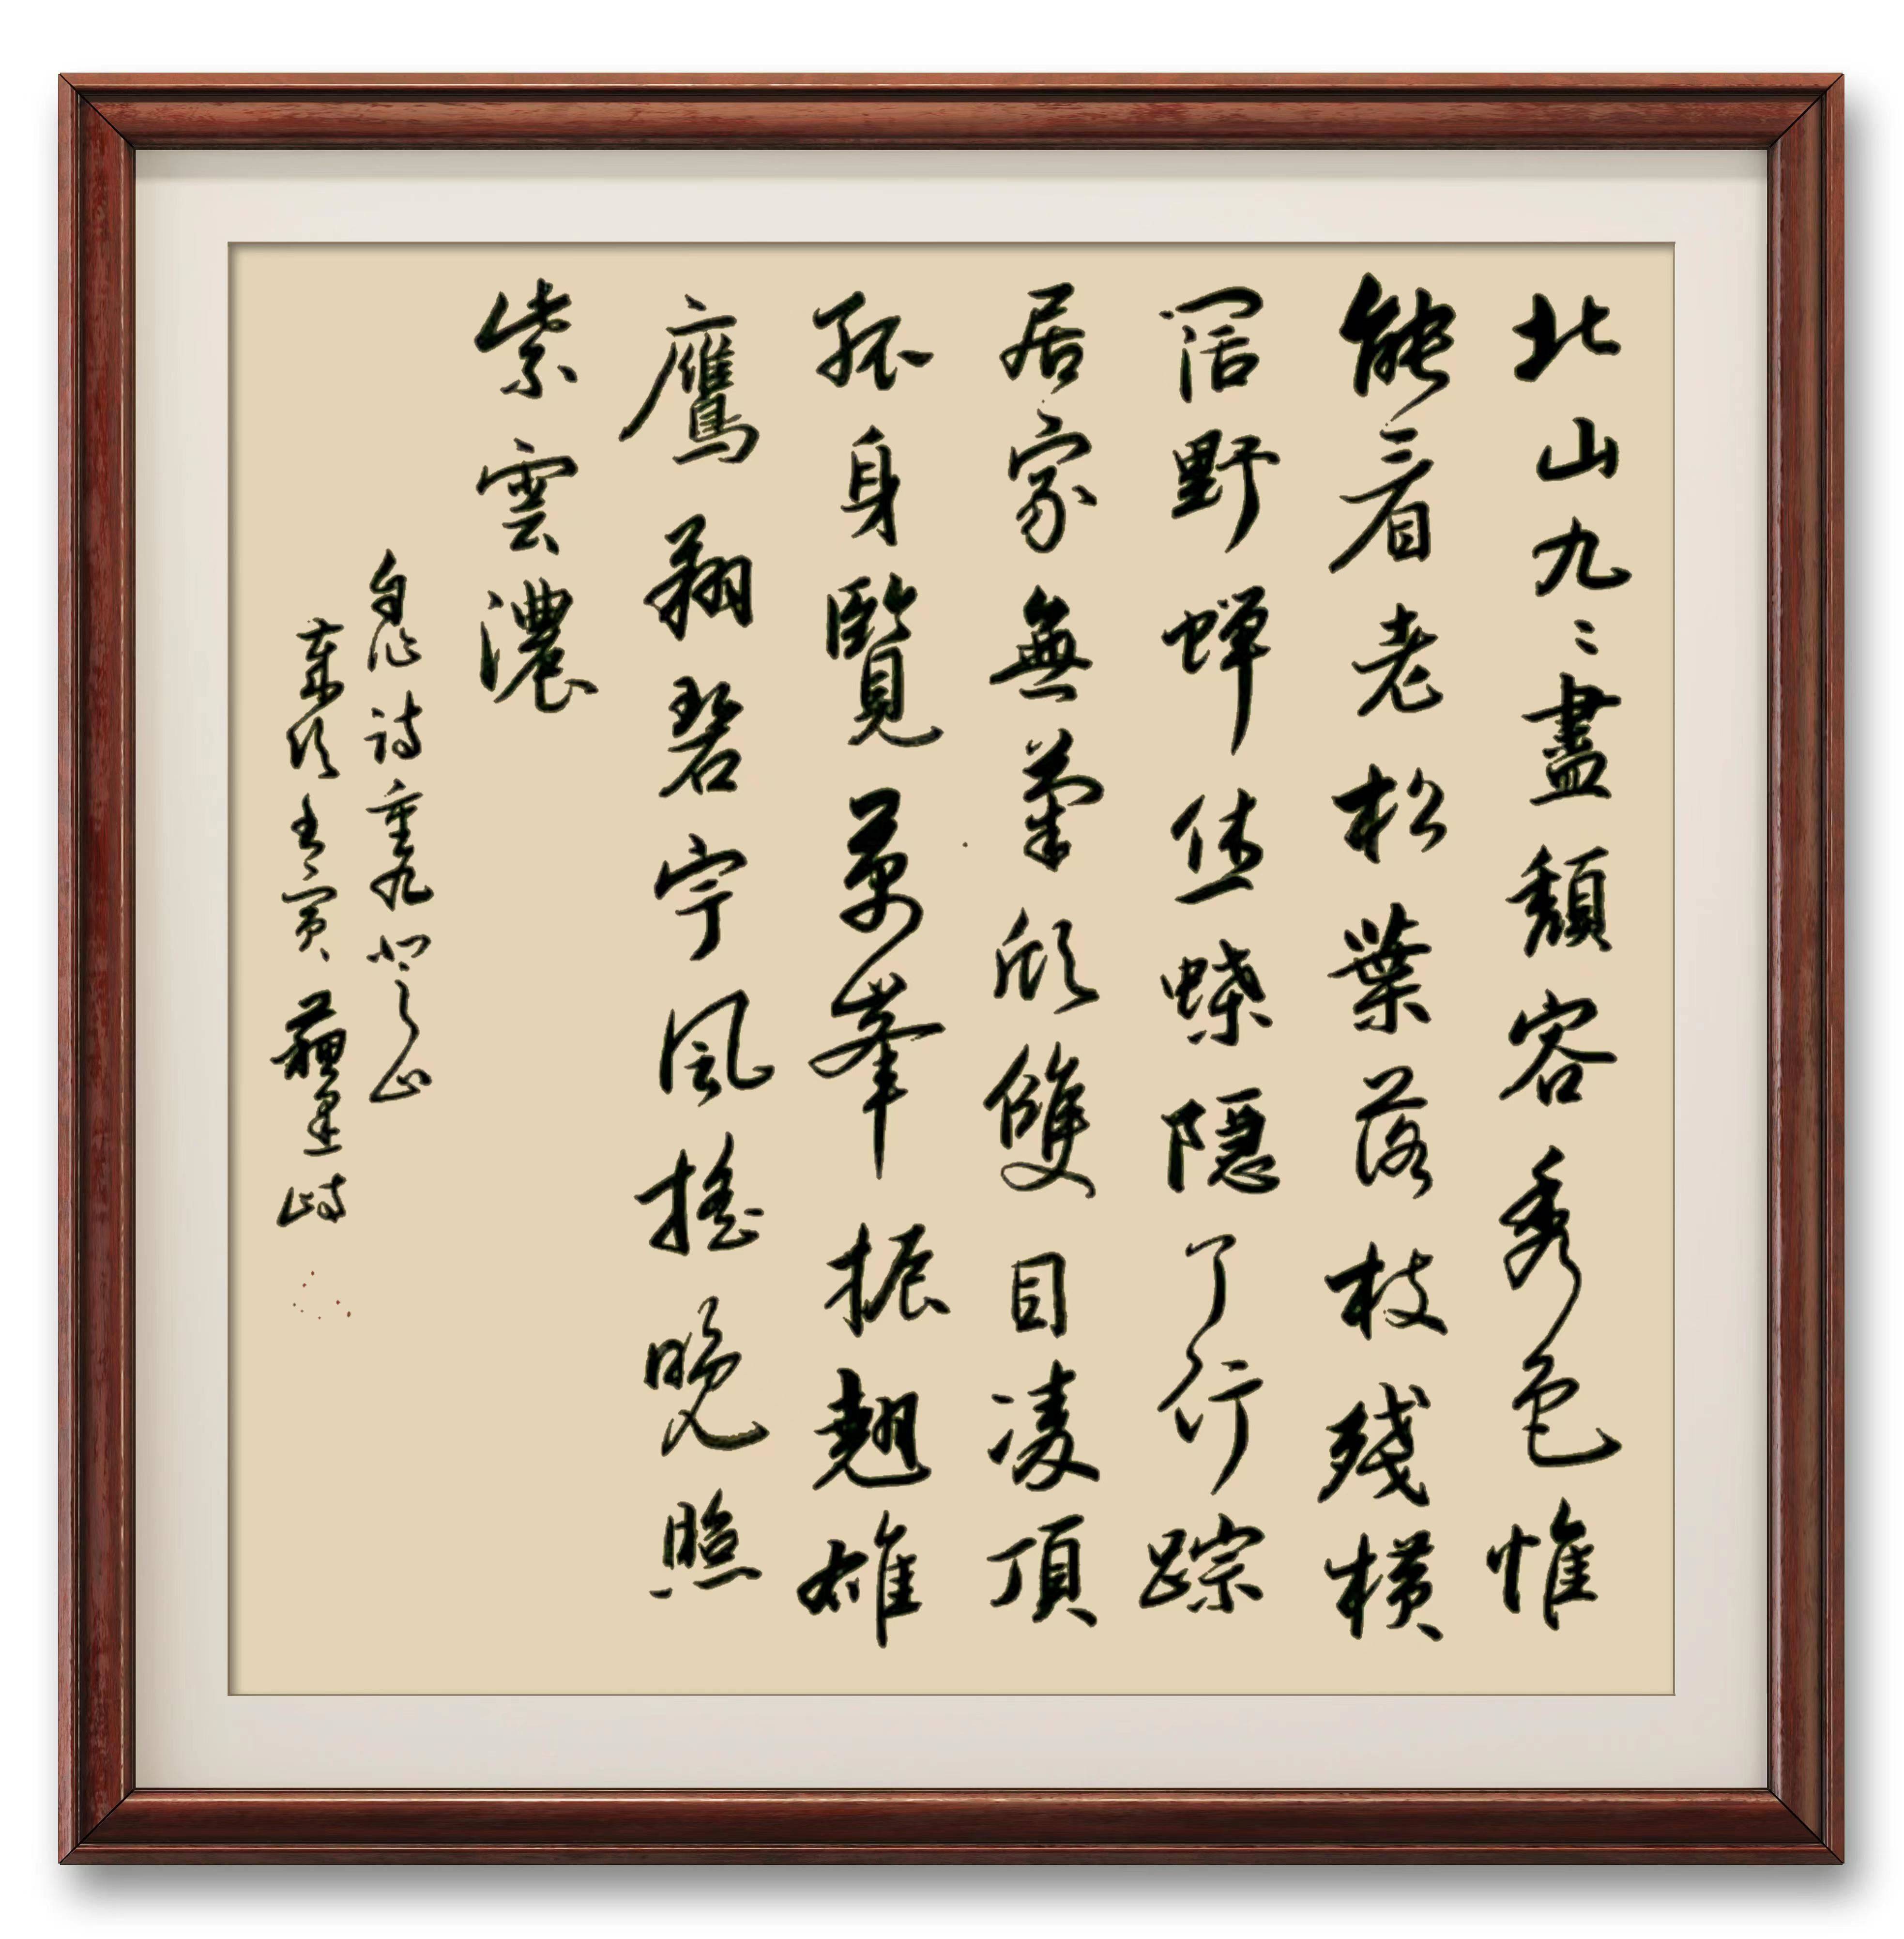 北山九〻盡頹容秀色惟
能看老松葉落枝殘橫
闊野蟬休蝶隱了行踪
居家無菊欣雙目凌頂
孤身覽萬峯振翹雄
鷹翔碧宇風搖晚照
紫雲濃
自作詩重九
歲次壬寅蘇峙